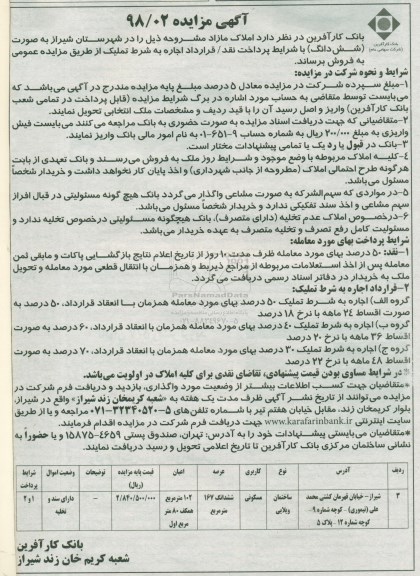 آگهی مزایده ۹۸/۰۲
بانک کارآفرین در نظر دارد املاک مازاد مشروحه ذیل را در شهرستان شیراز به صورت
(شش دانگ) با شرایط پرداخت نقد / قرارداد اجاره به شرط تملیک از طریق مزایده عمومی
به فروش برساند.
شرایط و نحوه شرکت در مزایده:
۱-مبلغ سپرده شرکت در مزایده معادل ۵ درصد مبلغ پایه مزایده مندرج در آگهی می‌باشد که
می‌بایست توسط متقاضی به حساب مورد اشاره در برگ شرایط مزایده (قابل پرداخت در تمامی شعب
بانک کارآفرین) واریز و اصل رسید آن را با قید ردیف و مشخصات ملک انتخابی تحویل نمایند.
۲-متقاضیانی که جهت دریافت اسناد مزایده به صورت حضوری به بانک مراجعه می کنند می‌بایست فیش
واریزی به مبلغ ۲۰۰/۰۰۰ ریال به شماره حساب ۹-۶۵۱-۰۱ به نام امور مالی بانک واریز نمایند.
۳-بانک در قبول یا رد یک یا تمامی پیشنهادات مختار است.
۴-کلیه املاک مربوطه با وضع موجود و شرایط روز ملک به فروش می‌رسند و بانک تعهدی از بابت
هر گونه طرح احتمالی املاک (مطروحه از جانب شهرداری) و اخذ پایان کار نخواهد داشت و خریدار شخصاً
مسئول می‌باشد.
۵-در مواردی که سهم‌الشرکه به صورت مشاعی واگذار می گردد بانک هیچ گونه مسئولیتی در قبال افراز
سهم مشاعی و اخذ سند تفکیکی ندارد و خریدار شخصاً مسئول می‌باشد.
۶-درخصوص املاک عدم تخلیه (دارای متصرف)، بانک هیچگونه مسئولیتی درخصوص تخلیه ندارد و
مسئولیت کامل رفع تصرف و تخلیه متصرف به عهده خریدار می‌باشد.
شرایط پرداخت بهای مورد معامله:
۱-نقد: ۵۰ درصد بهای مورد معامله ظرف مدت ۱۰ روز از تاریخ اعلام نتایج بازگشایی پاکات و مابقی ثمن
معامله پس از اخذ استعلامات مربوطه از مراجع ذیربط و همزمان با انتقال قطعی مورد معامله و تحویل
ملک به خریدار در دفاتر اسناد رسمی دریافت می‌گردد.
۲-قرارداد اجاره به شرط تملیک:
گروه الف) اجاره به شرط تملیک ۵۰ درصد بهای مورد معامله همزمان با انعقاد قرارداد، ۵۰ درصد به
صورت اقساط ۲۴ ماهه با نرخ ۱۸ درصد
گروه ب) اجاره به شرط تملیک ۴۰ درصد بهای مورد معامله همزمان با انعقاد قرارداد، ۶۰ درصد به صورت
اقساط ۳۶ ماهه با نرخ ۲۰ درصد
گروه ج) اجاره به شرط تملیک ۳۰ درصد بهای مورد معامله همزمان با انعقاد قرارداد، ۷۰ درصد به صورت
اقساط ۴۸ ماهه با نرخ ۲۲ درصد
* در شرایط مساوی بودن قیمت پیشنهادی، تقاضای نقدی برای کلیه املاک در اولویت می‌باشد.
*متقاضیان جهت کسب اطلاعات بیشتر از وضعیت مورد واگذاری، بازدید و دریافت فرم شرکت در
مزایده می توانند از تاریخ نشر آگهی ظرف مدت یک هفته به «شعبه کریمخان زند شیراز» واقع در شیراز،
بلوار کریمخان زند، مقابل خیابان هفتم تیر با شماره تلفن‌های ۵-۳۲۳۴۰۵۲۰-۰۷۱ مراجعه و یا از طریق
سایت اینترنتی www.karafarinbank.ir جهت دریافت فرم شرکت در مزایده اقدام فرمایند.
*متقاضیان می‌بایستی پیشنهادات خود را به آدرس: تهران، صندوق پستی ۴۶۵۹-۱۵۸۷۵ و یا حضوراً به
نشانی ساختمان مرکزی بانک کارآفرین تا تاریخ اعلامی تحویل و رسید دریافت نمایند.
ردیف آدرس نوع کاربری عرصه اعیان قیمت پایه مزایده (ریال) توضیحات وضعیت اموال شرایط پرداخت
۳ شیراز - خیابان قهرمان کشتی محمد علی (تیموری) - کوچه شماره ۹ - کوچه شماره ۱۲ - پلاک ۵ ساختمان ویلایی مسکونی ششدانگ ۱۶۷ مترمربع ۱۰۲ مترمربع همکف ۸۰ متر مربع اول ۲/۸۴۰/۵۰۰/۰۰۰ - دارای سند و تخلیه ۱ و ۲
بانک کارآفرین
شعبه کریم خان زند شیراز